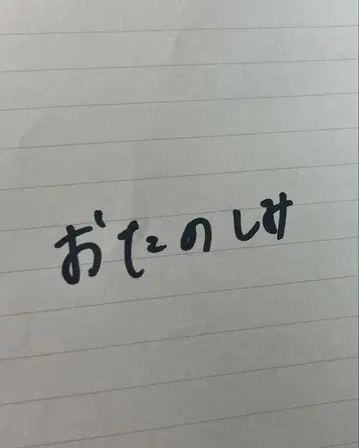 おたのしみ